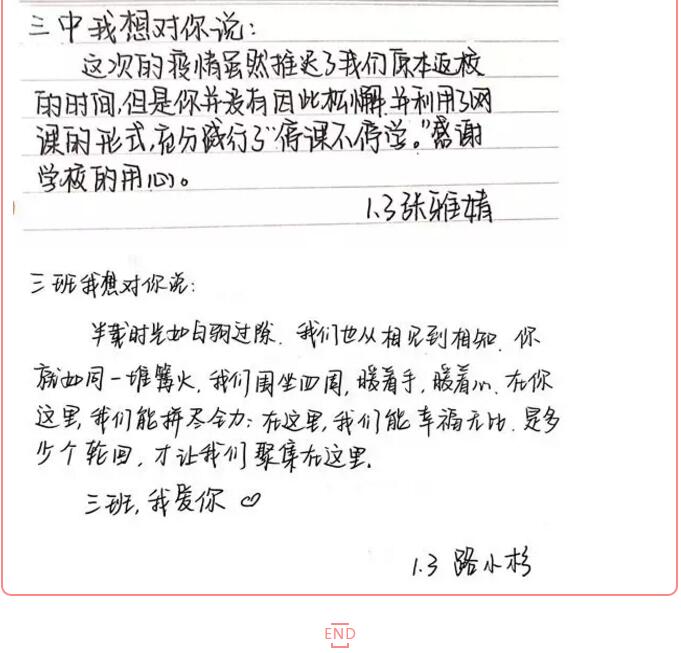 三中我想对你说:
这次的疫情虽然推迟了我们原本返校
的时间,但是你并没有因此松懈,并利用了网
课的形式,充分践行了“停课不停学。”感谢
学校的用心。
1.3张雅婧
三班我想对你说:
半载时光如白驹过隙,我们也从相见到相知,你
就如同一堆篝火,我们围坐四周,暖着手,暖着心.在你
这里,我们能拼尽全力;在这里,我们能幸福无比.是多
少个轮回,才让我们聚集在这里.
三班,我爱你♡
1.3 路小杉
END